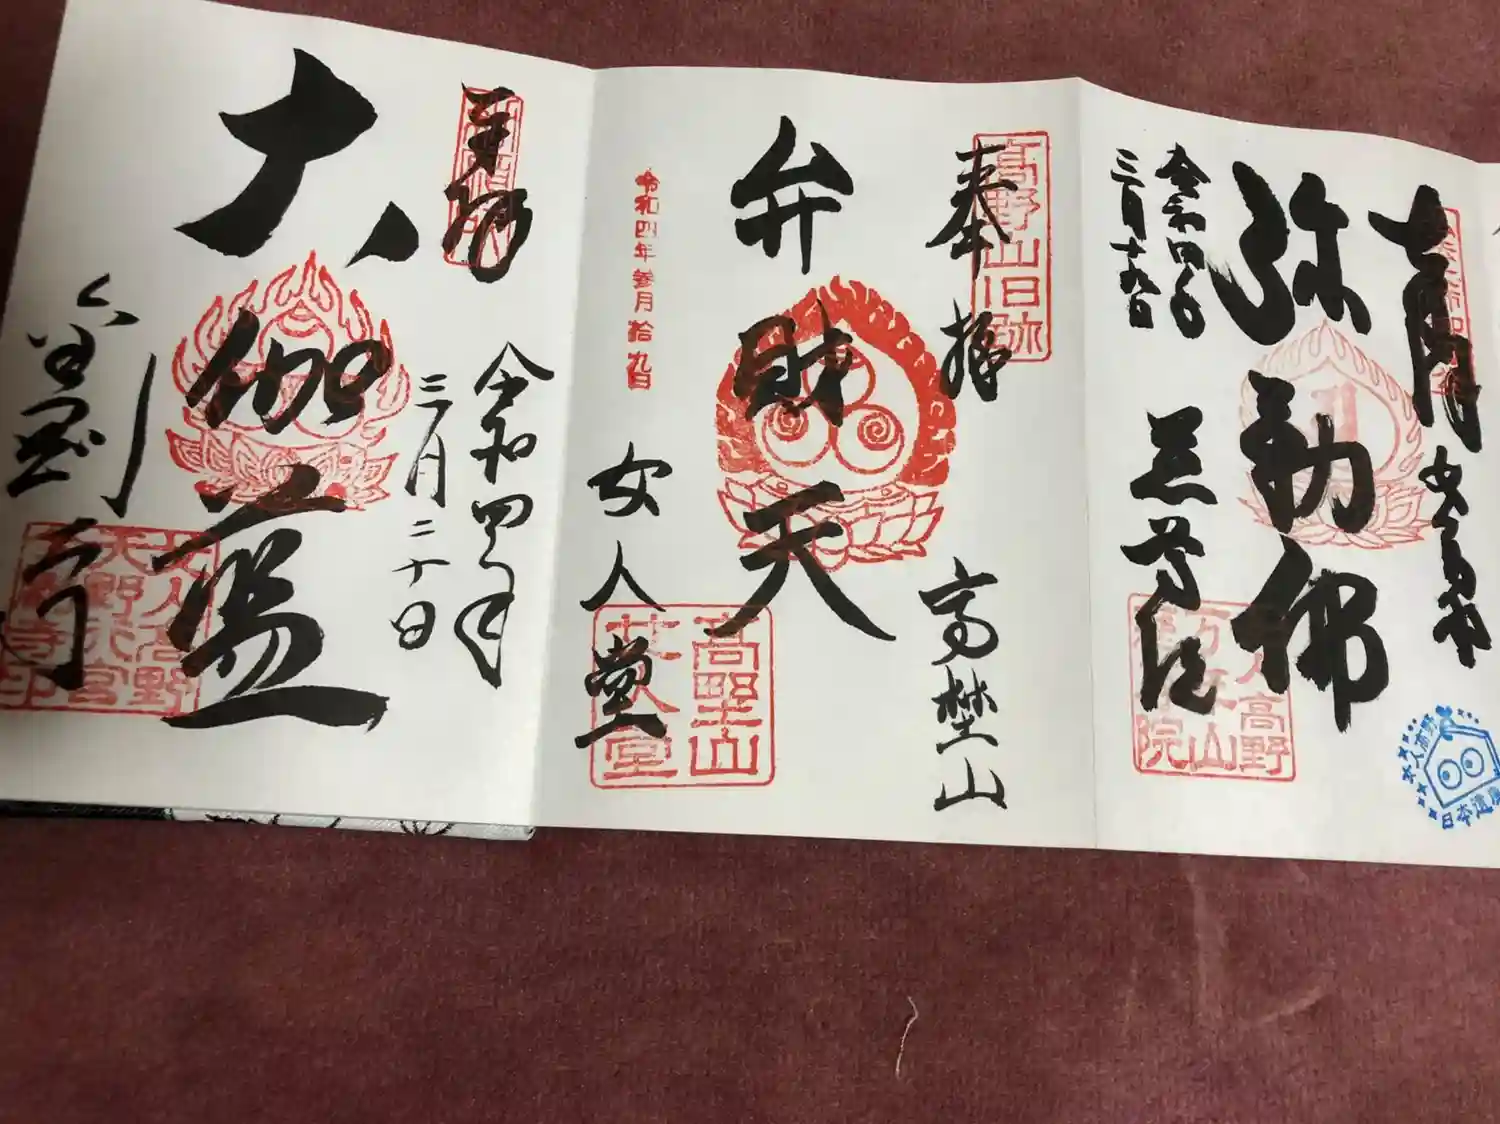 令和四年
三月十九日
弥勒佛
慈尊院
女人高野
万年山
慈尊院
女人高野
日本遺産
奉拝
高野山旧跡
高埜山
弁財天
令和四年参月拾九日
女人堂
高野山
女人堂
奉拝
令和四年
三月二十日
大伽藍
金剛寺
女人高野
天野行宮